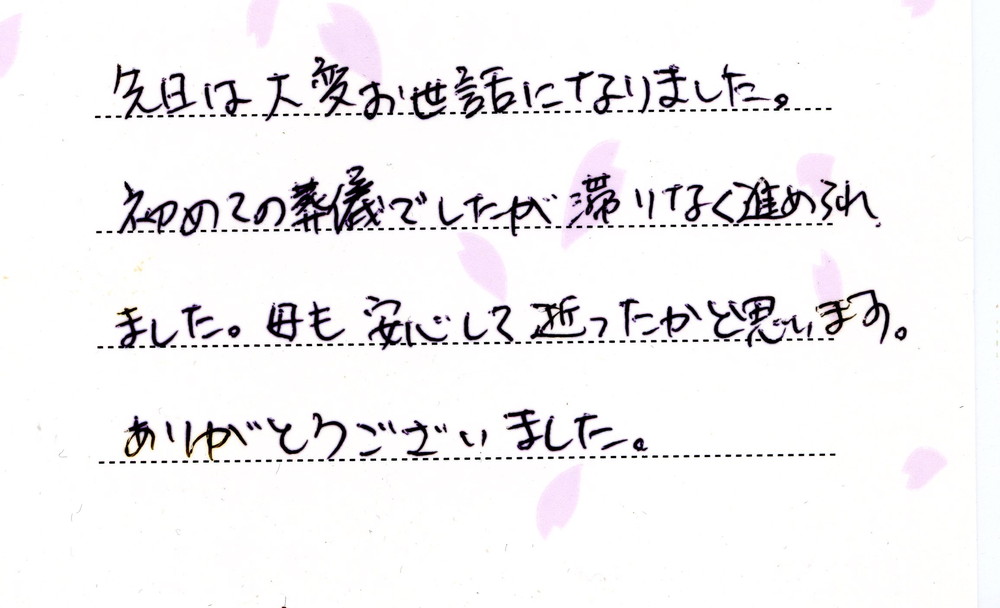 先日は大変お世話になりました。
初めての葬儀でしたが滞りなく進められ
ました。母も安心して逝ったかと思います。
ありがとうございました。